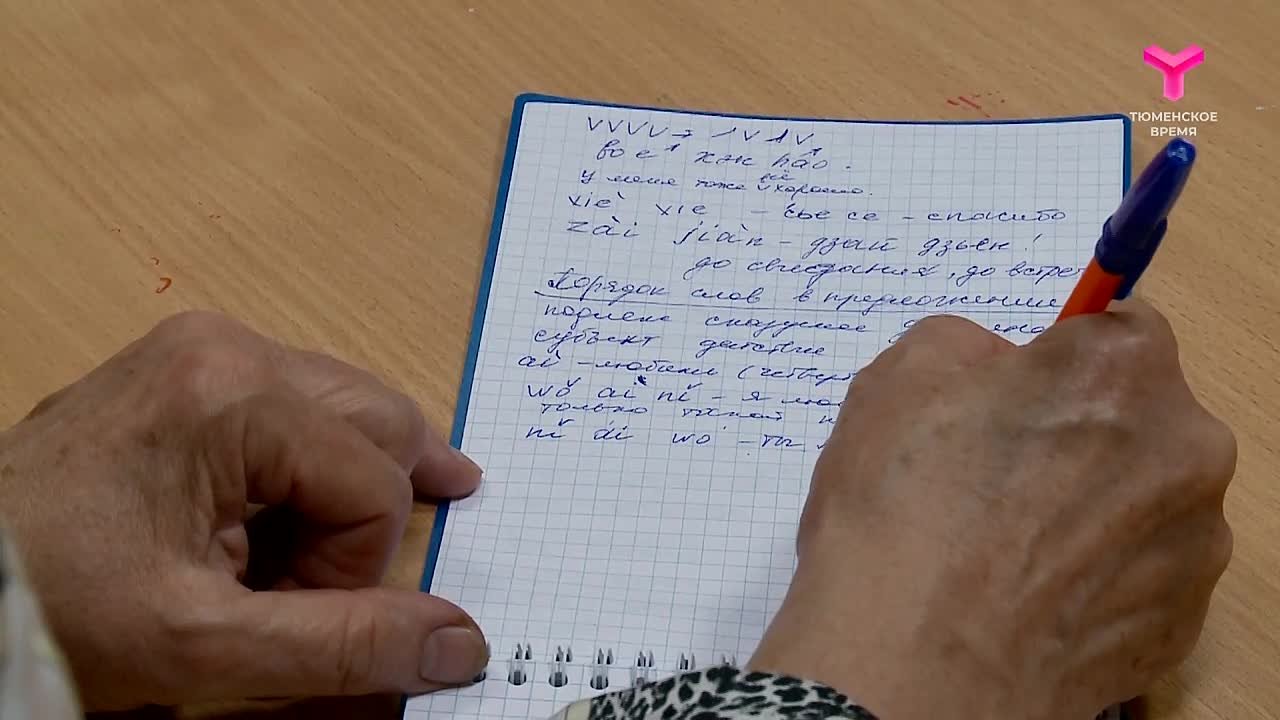 ТЮМЕНСКОЕ
ВРЕМЯ
VVVV → / V / V
во е хэн hǎo.
у меня тоже всё хорошо.
xiè xie – сье се – спасибо
zài jiàn – дзай дзьен!
до свидания, до встре
Порядок слов в предложении
подлеж сказуемое
субъект действие
ài – любить
wǒ ài nǐ – я
только такой
nǐ ài wǒ – ты